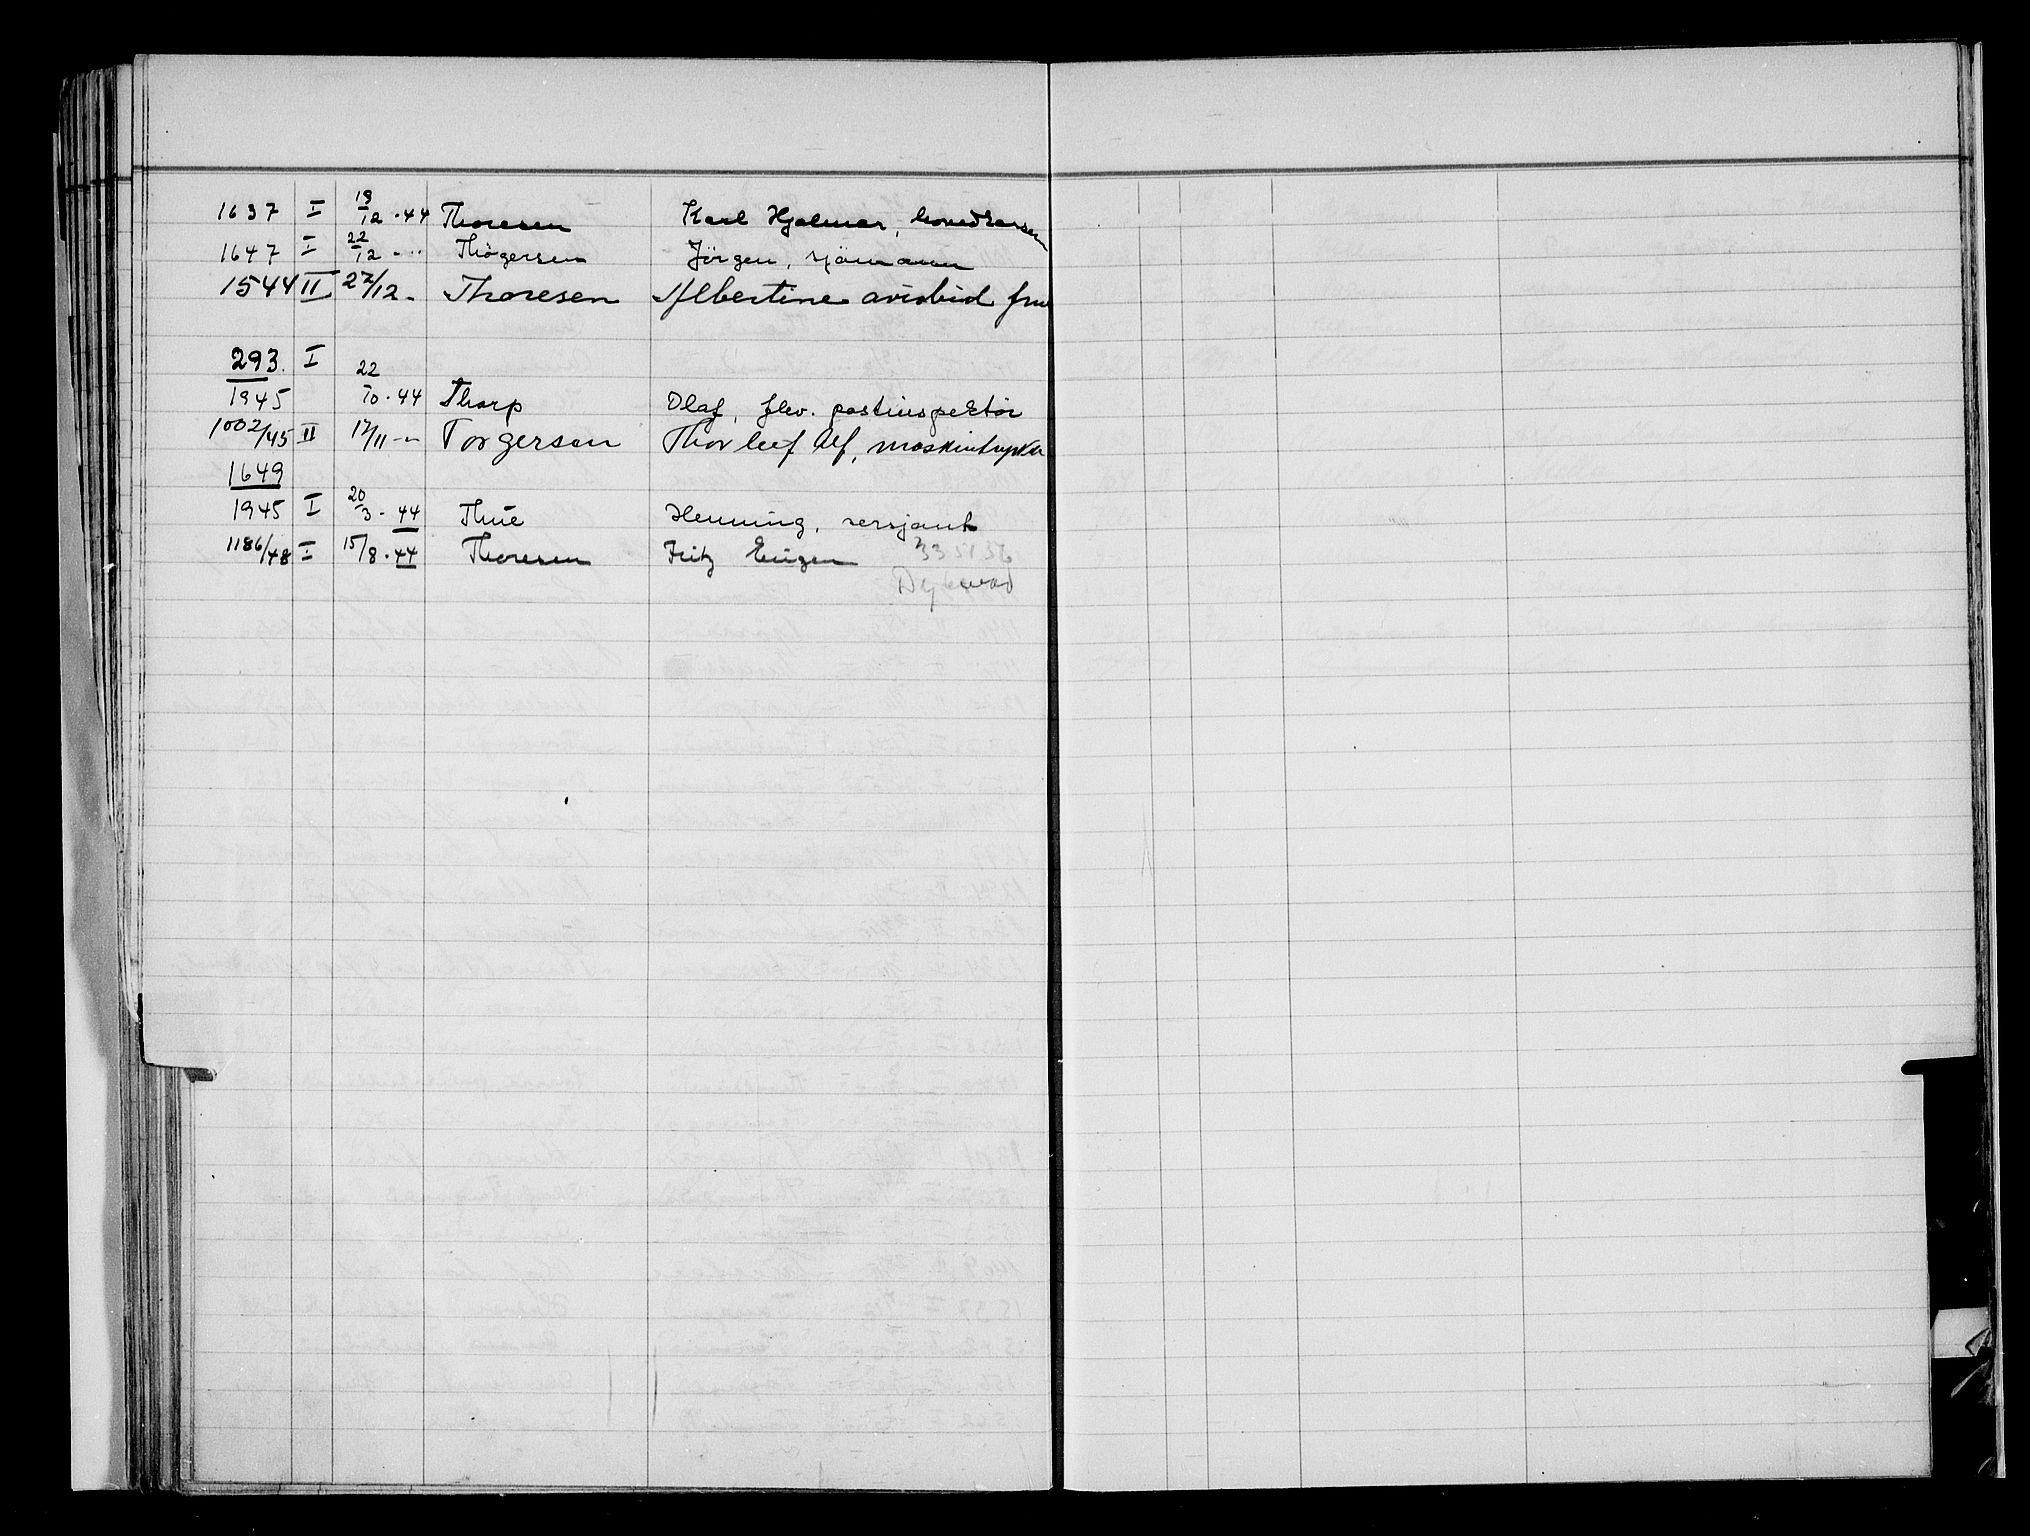 1637 I 19/12 · 44 Thoresen Karl Hjalmar, hovedkasserer
1647 I 22/12 - " Thögersen Jörgen, sjömann
1544 II 27/12 - Thoresen Albertine avisbud frue
293. I
1945 22/10 · 44 Thorp Olaf, flev. postinspektör
1002/45 II 17/11 - " Torgersen Thorleif Alf, maskintrykker
1649
1945 I 20/3 - 44 Thue Henning, sersjant
1186/48 I 15/8 · 44 Thoresen Fritz Eugen